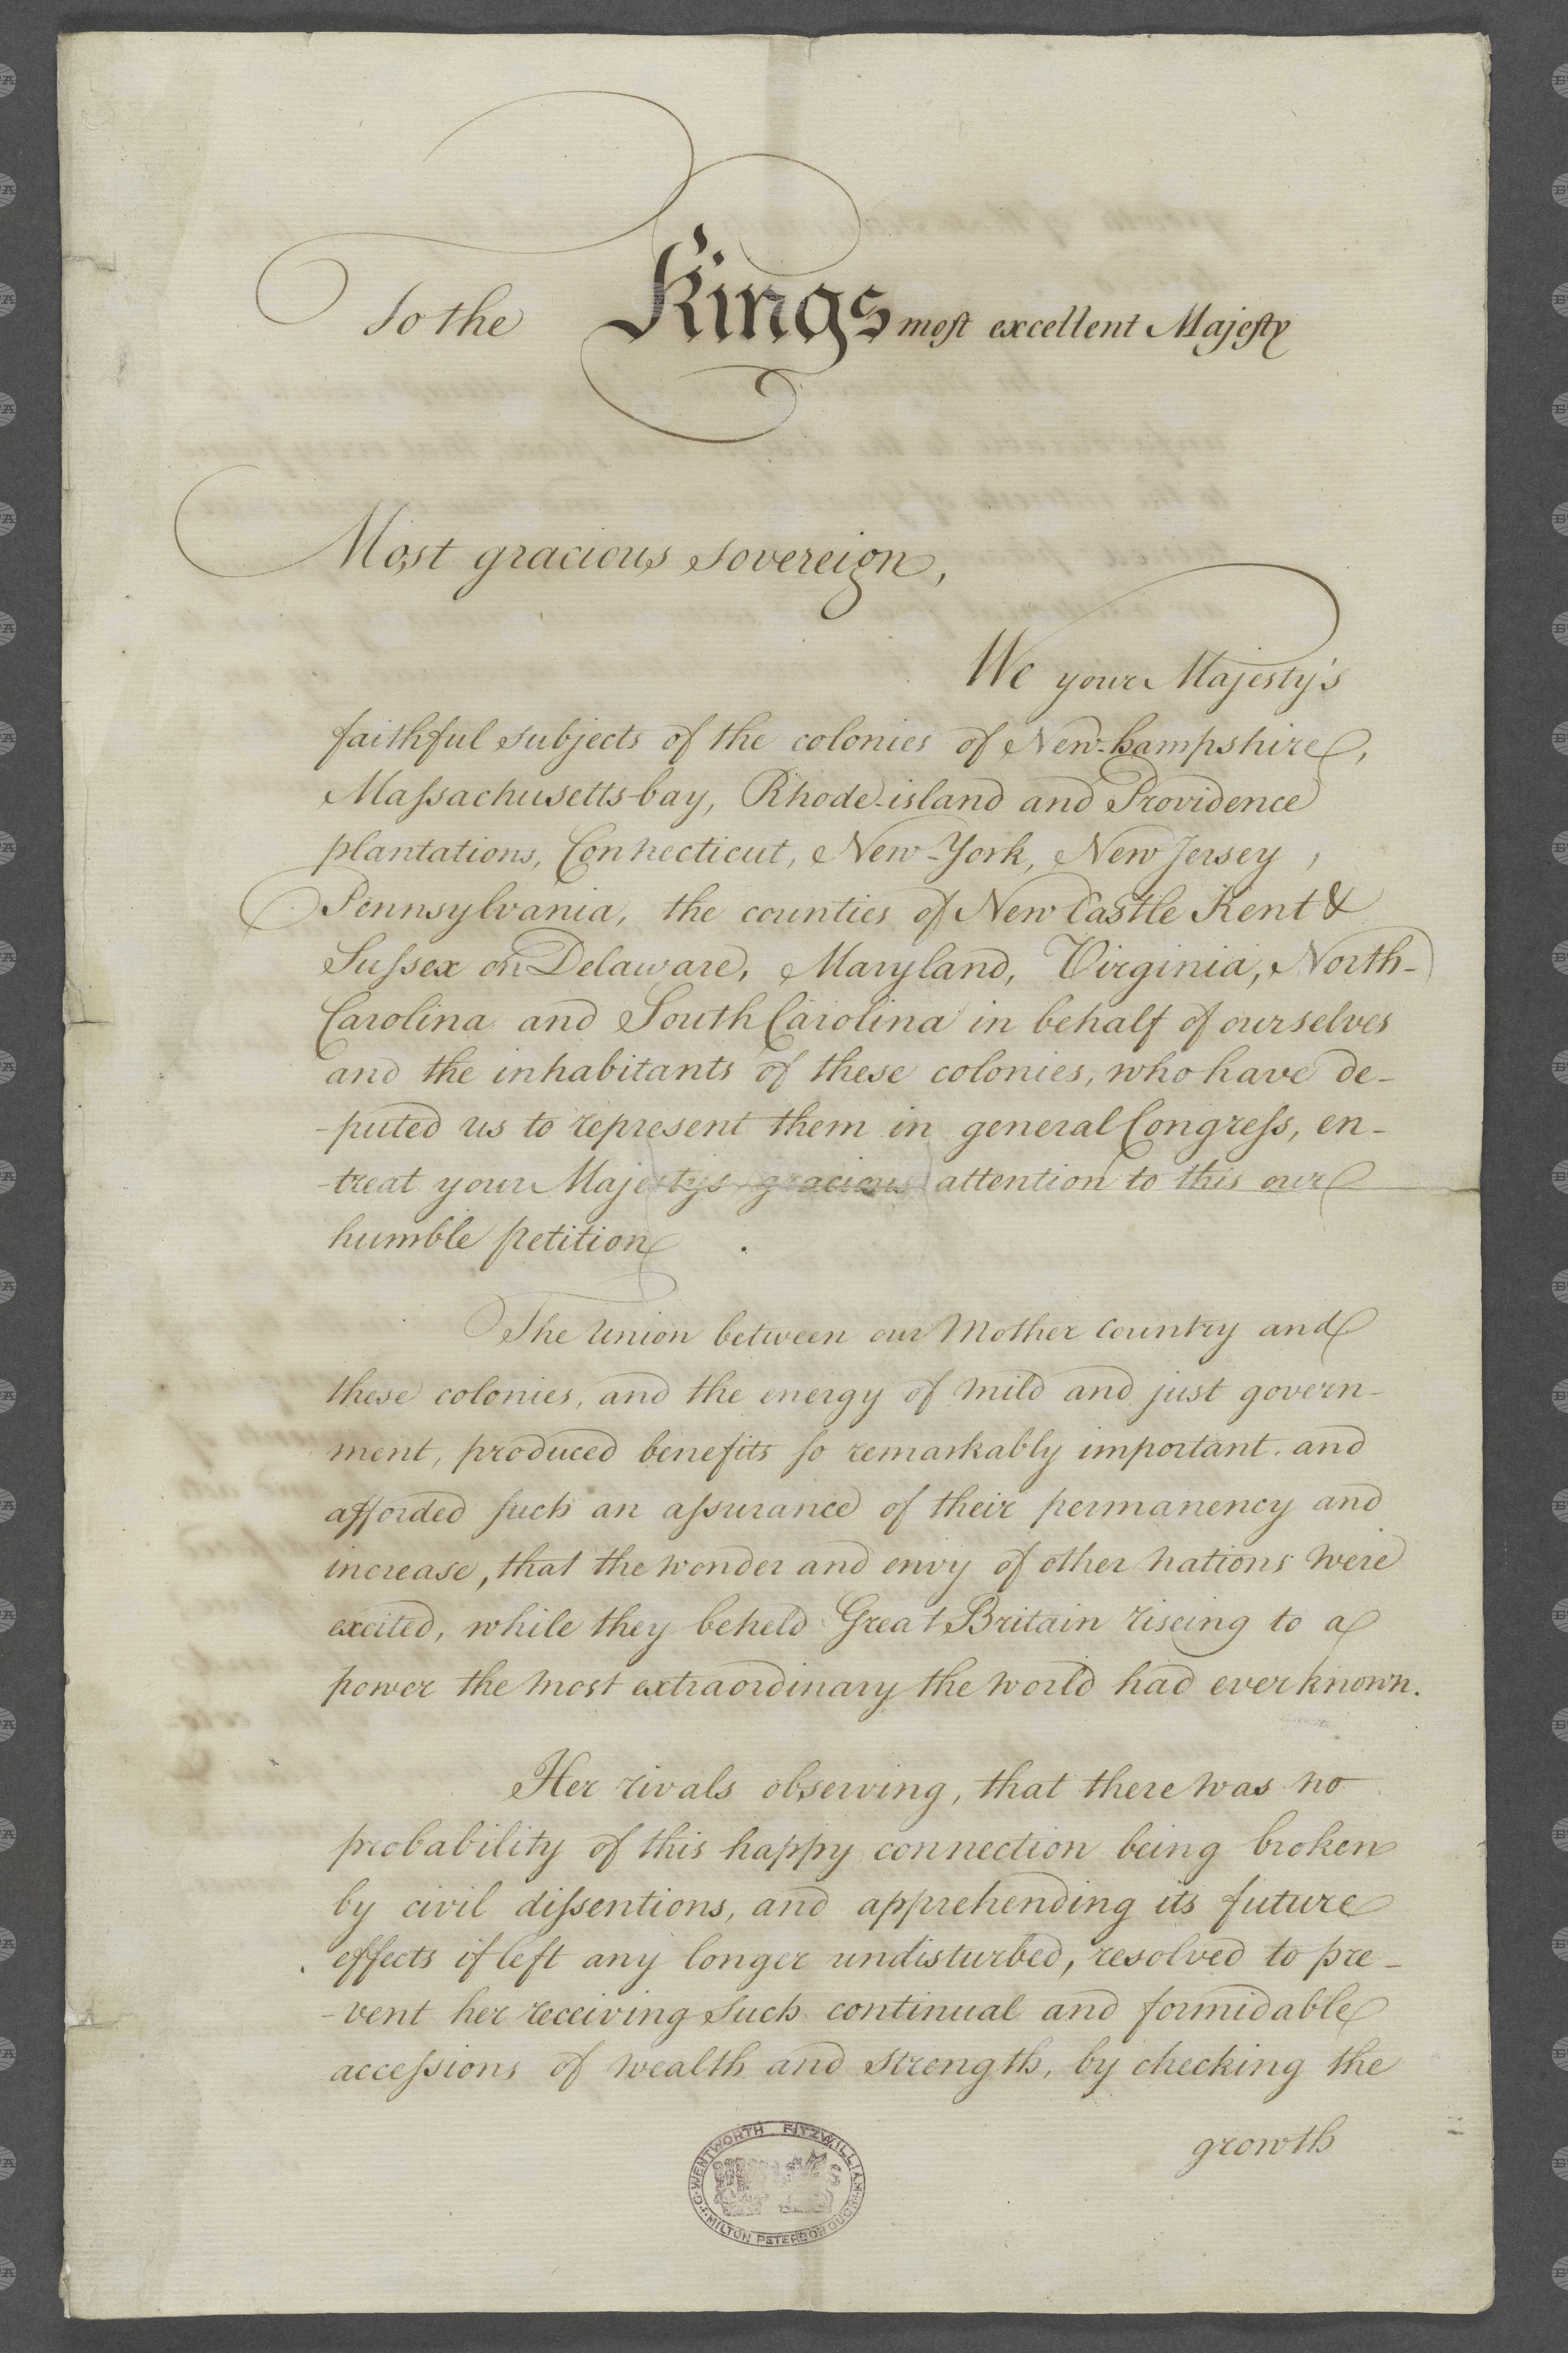 To the Kings most excellent Majesty
Most gracious sovereign,
We your Majesty's
faithful subjects of the colonies of New-hampshire,
Massachusetts-bay, Rhode-island and Providence
plantations, Connecticut, New-York, New Jersey,
Pennsylvania, the counties of New Castle Kent &
Sussex on Delaware, Maryland, Virginia, North-
Carolina and South Carolina in behalf of ourselves
and the inhabitants of these colonies, who have de-
-puted us to represent them in general Congress, en-
-treat your Majestys gracious attention to this our
humble petition.
The Union between our Mother Country and
these colonies, and the energy of mild and just govern-
ment, produced benefits so remarkably important, and
afforded such an assurance of their permanency and
increase, that the wonder and envy of other nations were
excited, while they beheld Great Britain riseing to a
power the most extraordinary the world had ever known.
Her rivals observing, that there was no
probability of this happy connection being broken
by civil dissentions, and apprehending its future
effects if left any longer undisturbed, resolved to pre-
-vent her receiving such continual and formidable
accessions of wealth and strength, by checking the
growth
WENTWORTH FITZWILLIAM
MILTON PETERBOROUGH